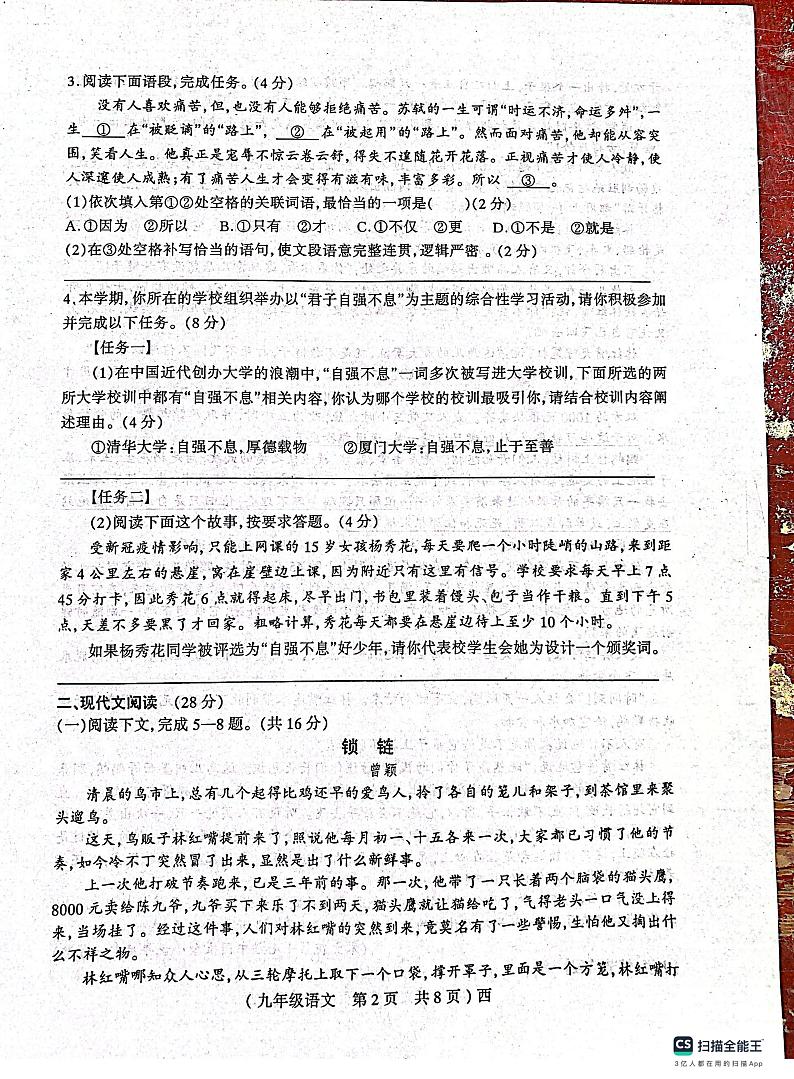 3.阅读下面语段,完成任务。(4分)
没有人喜欢痛苦,但,也没有人能够拒绝痛苦。苏轼的一生可谓“时运不济,命运多舛”,一
生 ① 在“被贬谪”的“路上”, ② 在“被起用”的“路上”。然而面对痛苦,他却能从容突
围,笑看人生。他真正是宠辱不惊云卷云舒,得失不遑随花开花落。正视痛苦才使人冷静,使
人深邃使人成熟;有了痛苦人生才会变得有滋有味,丰富多彩。所以 ③ 。
(1)依次填入第①②处空格的关联词语,最恰当的一项是( )(2分)
A.①因为 ②所以 B.①只有 ②才 C.①不仅 ②更 D.①不是 ②就是
(2)在③处空格补写恰当的语句,使文段语意完整连贯,逻辑严密。(2分)
4.本学期,你所在的学校组织举办以“君子自强不息”为主题的综合性学习活动,请你积极参加
并完成以下任务。(8分)
【任务一】
(1)在中国近代创办大学的浪潮中,“自强不息”一词多次被写进大学校训,下面所选的两
所大学校训中都有“自强不息”相关内容,你认为哪个学校的校训最吸引你,请结合校训内容阐
述理由。(4分)
①清华大学:自强不息,厚德载物 ②厦门大学:自强不息,止于至善
【任务二】
(2)阅读下面这个故事,按要求答题。(4分)
受新冠疫情影响,只能上网课的15岁女孩杨秀花,每天要爬一个小时陡峭的山路,来到距
家4公里左右的悬崖,窝在崖壁边上课,因为附近只有这里有信号。学校要求每天早上7点
45分打卡,因此秀花6点就得起床,尽早出门,书包里装着馒头、包子当作干粮。直到下午5
点,天差不多要黑了才回家。粗略计算,秀花每天都要在悬崖边待上至少10个小时。
如果杨秀花同学被评选为“自强不息”好少年,请你代表校学生会她为设计一个颁奖词。
二、现代文阅读 (28分)
(一)阅读下文,完成5—8题。(共16分)
锁 链
曾颖
清晨的鸟市上,总有几个起得比鸡还早的爱鸟人,拎了各自的笼儿和架子,到茶馆里来聚
头遛鸟。
这天,鸟贩子林红嘴提前来了,照说他每月初一、十五各来一次,大家都已习惯了他的节
奏,如今冷不丁突然冒了出来,显然是出了什么新鲜事。
上一次他打破节奏跑来,已是三年前的事。那一次,他带了一只长着两个脑袋的猫头鹰,
8000元卖给陈九爷,九爷买下来乐了不到两天,猫头鹰就让猫给吃了,气得老头一口气没上得
来,当场挂了。经过这件事,人们对林红嘴的突然到来,竟莫名有了一些警惕,生怕他又掏出什
么不祥之物。
林红嘴哪知众人心思,从三轮摩托上取下一个口袋,撑开罩子,里面是一个方笼,林红嘴打
(九年级语文 第2页 共8页)西
CS 扫描全能王
3亿人都在用的扫描App